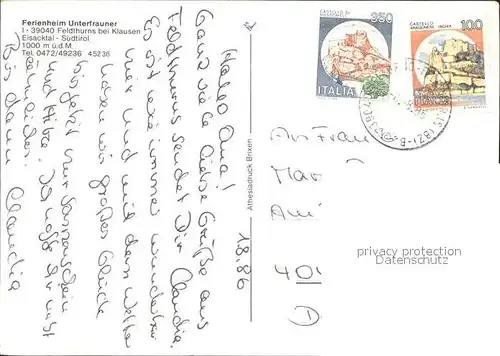 Ferienheim Unterfrauner
I - 39040 Feldthurns bei Klausen
Eisacktal - Südtirol
1000 m ü.d.M.
Tel. 0472/49236 45236
Athesiadruck Brixen
CASTELLO DI
350
ITALIA
CASTELLO
ARAGONESE - ISCHIA
100
ITALIA
18.86
Hallo Oma!
Ganz viele liebe Grüße aus
Feldthurns sendet Dir Claudia.
Es ist wie immer wunderbar
hier und mit dem Wetter
haben wir großes Glück
bis jetzt nur Sonnenschein
und Hitze. Ich hoffe Dir
Bis dann Claudia
An Frau
Mar
Am
40
D
privacy protection
Datenschutz